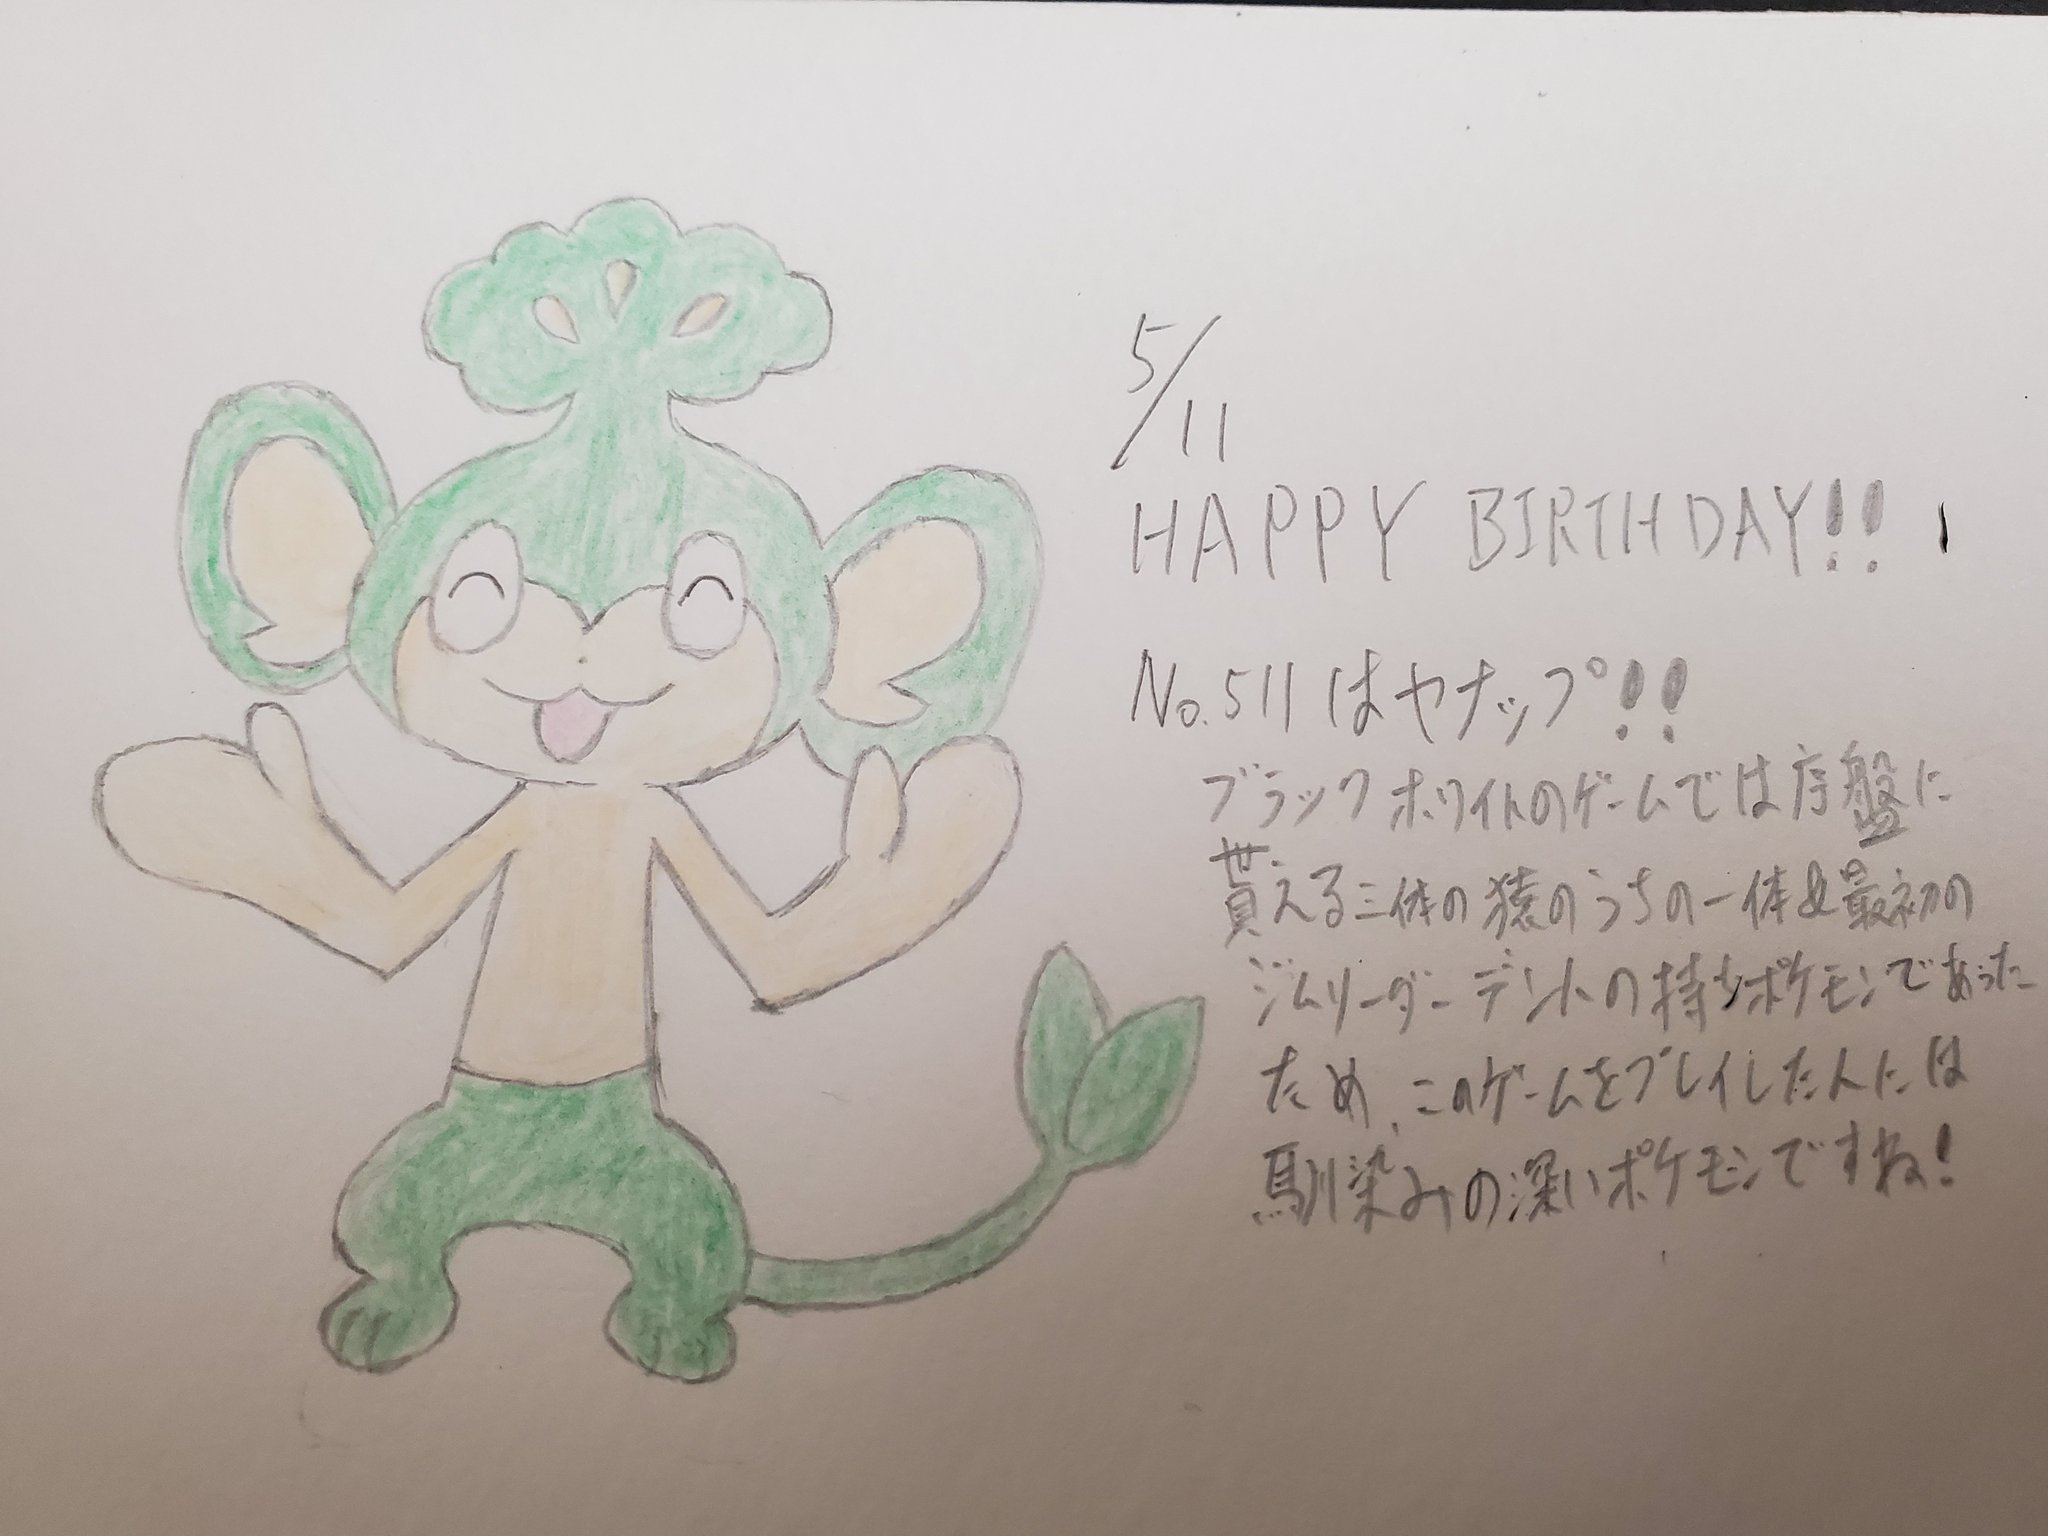 5/11
HAPPY BIRTHDAY!!
No.511はヤナップ!!
ブラックホワイトのゲームでは序盤に
貰える三体の猿のうちの一体&最初の
ジムリーダーデントの持つポケモンであった
ため、このゲームをプレイした人には
馴染みの深いポケモンですね!